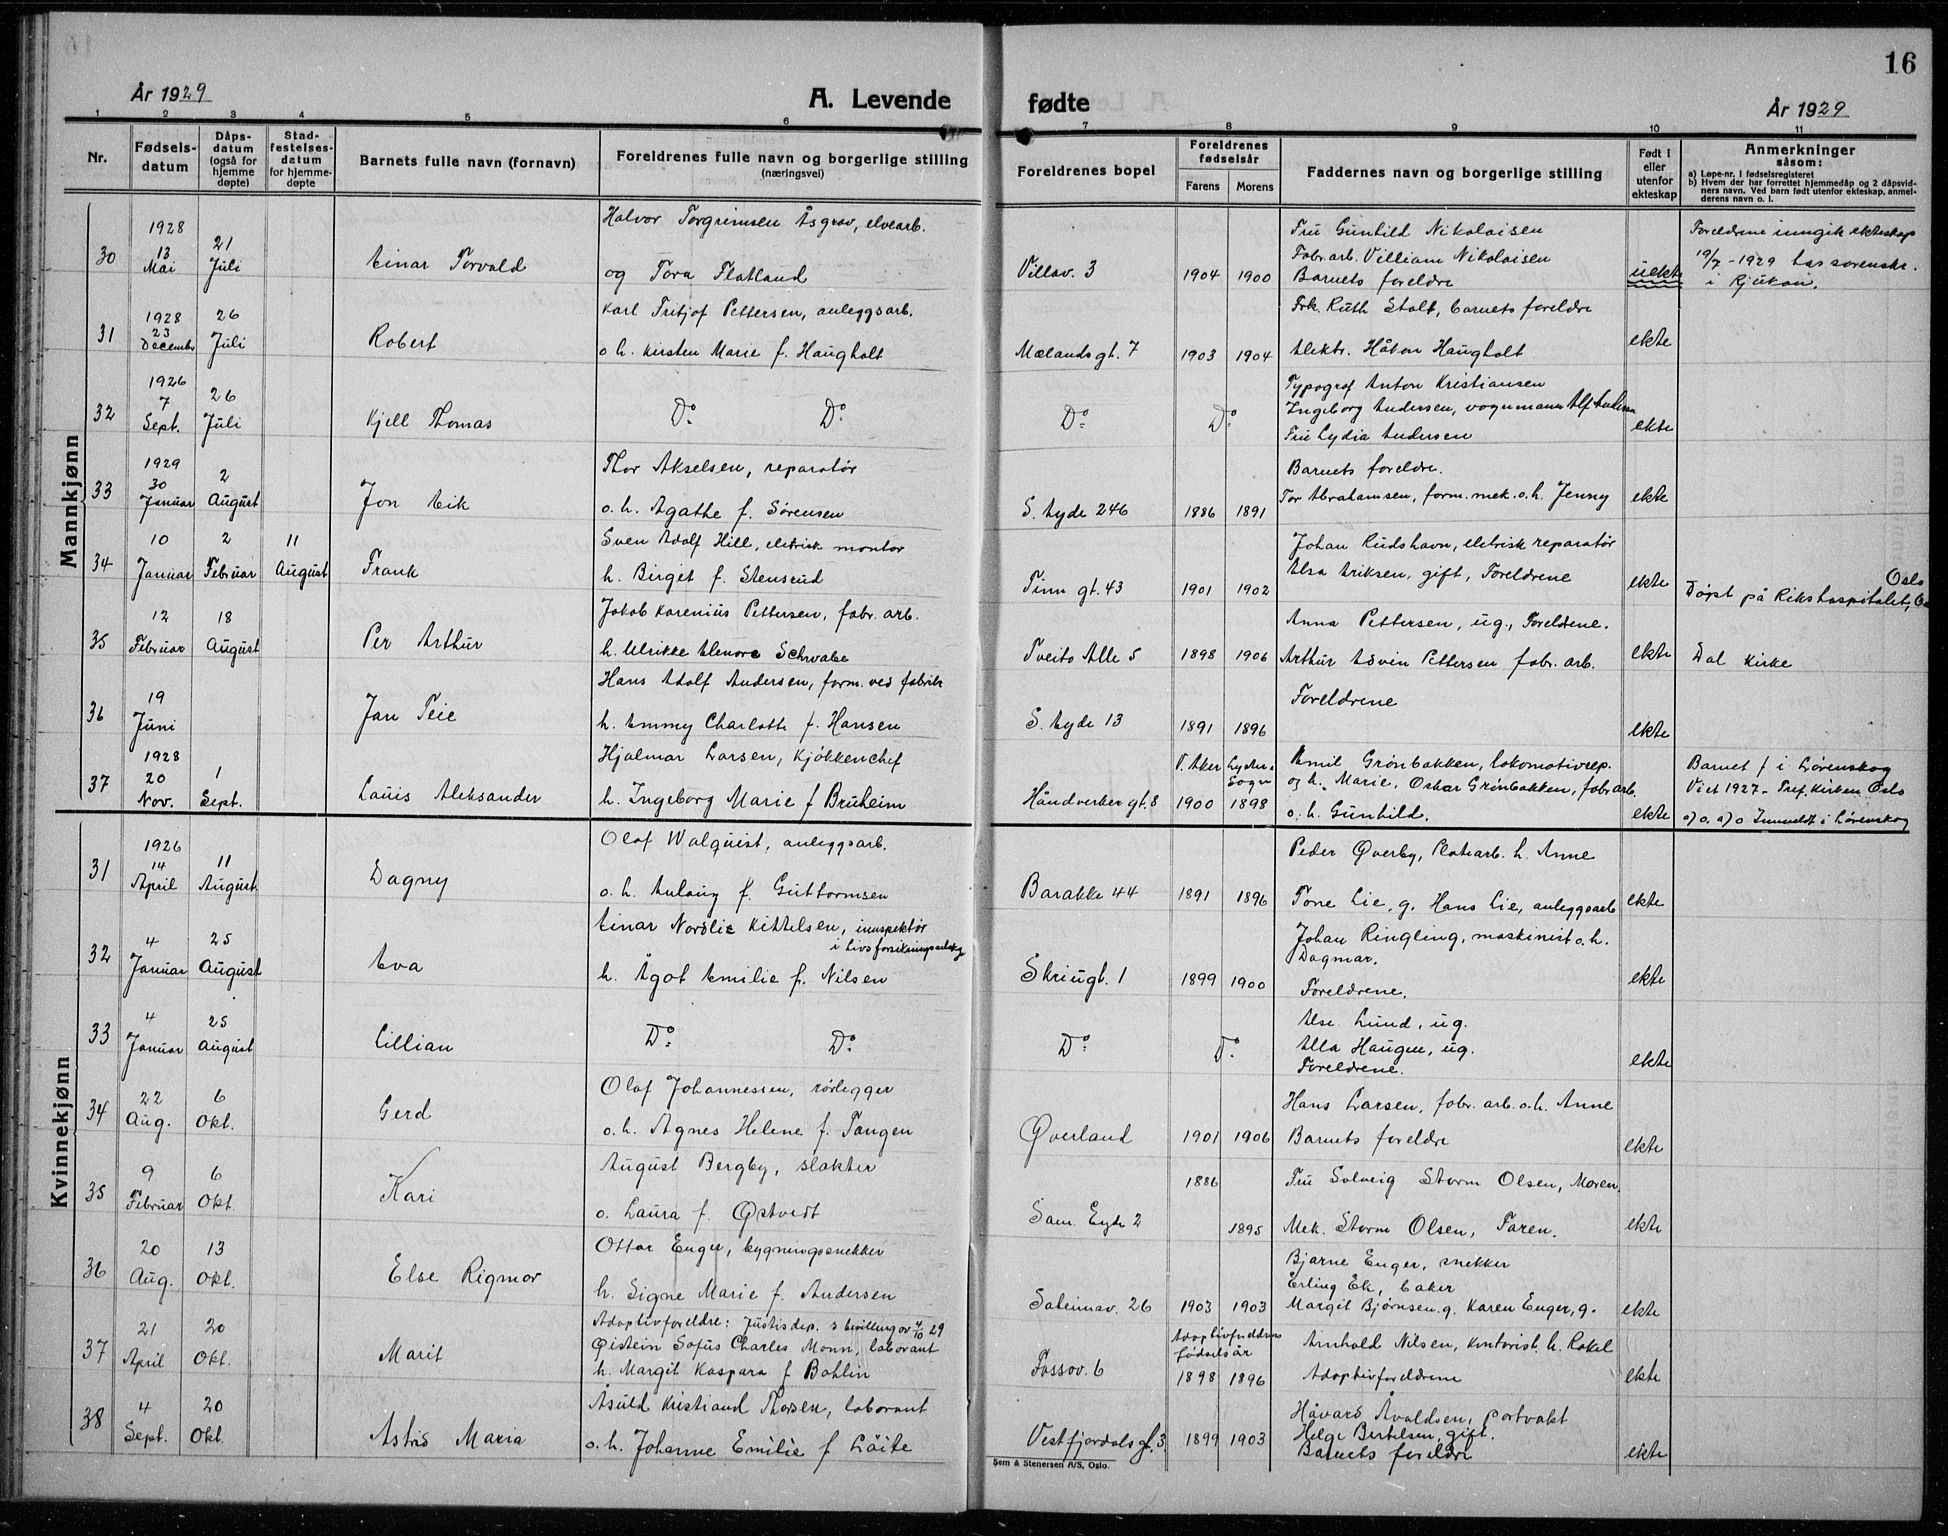 År 1929
A. Levende
fødte
År 1929
16
1 2 3 4 5 6 7 8 9 10 11
Nr.
Fødsels-
datum
Dåps-
datum
(også for
hjemme
døpte)
Stad-
festelses-
datum
for hjemme-
døpte
Barnets fulle navn (fornavn)
Foreldrenes fulle navn og borgerlige stilling
(næringsvei)
Foreldrenes bopel
Foreldrenes
fødselsår
Farens Morens
Faddernes navn og borgerlige stilling
Født i
eller
utenfor
ekteskap
Anmerkninger
såsom:
a) Løpe-nr. i fødselsregisteret
b) Hvem der har forrettet hjemmedåp og 2 dåpsvid-
ners navn. Ved barn født utenfor ekteskap, anmel-
derens navn o. l.
Mannkjønn
30
1928
13
Mai
21
Juli
Einar Torvald
Halvor Torgrimsen Åsgrav, elvearb.
og Tora Flatland
Villav. 3
1904 1900
Fru Gunhild Nikolaisen
Fabr.arb. Villiam Nikolaisen
Barnets foreldre
uekte
Foreldrene inngik ekteskap
19/7 - 1929 hos sorenskr.
i Rjukan.
31
1928
23
Decembr
26
Juli
Robert
Karl Fritjof Pettersen, anleggsarb.
o h. Kirsten Marie f. Haugholt
Mælandsgt. 7
1903 1904
Frk. Ruth Stolt, barnets foreldre
Elektr. Håkon Haugholt
ekte
32
1926
7
Sept.
26
Juli
Kjell Thomas
Do Do
Do
Do
Typograf Anton Kristiansen
Ingeborg Andersen, vognmann Alf Andersen
Fru Lydia Andersen
ekte
33
1929
30
Januar
2
August
Jon Eik
Thor Akselsen, reparatør
o. h. Agathe f. Sørensen
S. Eyde 246
1886 1891
Barnets foreldre.
Tor Abrahamsen, form. mek. o. h. Jenny
ekte
34
10
Januar
2
Februar
11
August
Frank
Sven Adolf Hill, elektrisk montør
h. Birget f. Stensrud
Tinn gt. 43
1901 1902
Johan Rudshavn, elektrisk reparatør
Elsa Eriksen, gift, Foreldrene
ekte
Døpt på Rikshospitalet, Oslo
35
12
Februar
18
August
Per Arthur
Jakob Karenius Pettersen, fabr. arb.
h. Ulrikke Elenore Schwabe
Tveito Alle 5
1898 1906
Anna Pettersen, ug., Foreldrene.
Arthur Edvin Pettersen fabr. arb.
ekte
Dal Kirke
36
19
Juni
Jan Teie
Hans Adolf Andersen, form. ved fabrik
h. Emmy Charlotte f. Hansen
S. Eyde 13
1891 1896
Foreldrene
ekte
37
1928
20
Nov.
1
Sept.
Lauis Aleksander
Hjalmar Larsen, Kjøkkenchef
h. Ingeborg Marie f Bruheim
Håndverker gt. 8
V. Aker
1900
Sogn
1898
Emil Grønbakken, lokomotivrep.
og h. Marie, Oskar Grønbakken, fabr. arb.
o. h. Gunhild.
ekte
Barnet f i Lørenskog
Viet 1927 - Tref. Kirken Oslo
a) o. a) o Innmeldt i Lørenskog
Kvinnekjønn
31
1926
14
April
11
August
Dagny
Olaf Walquist, anleggsarb.
o. h. Aulaug f. Guttormsen
Barakke 44
1891 1896
Peder Øverby, Platearb. h. Anne
Tone Lie, g. Hans Lie, anleggsarb
ekte
32
4
Januar
25
August
Eva
Einar Nordlie Kittelsen, innspektør
i Livsforsikringsselskap
h. Ågot Emilie f. Nilsen
Skriugt. 1
1899 1900
Johan Ringling, maskinist o. h.
Dagmar.
Foreldrene.
ekte
33
4
Januar
25
August
Lillian
Do Do
Do
Do
Else Lund, ug.
Ella Haugen, ug.
Foreldrene.
ekte
34
22
Aug.
6
Okt.
Gerd
Olaf Johannessen, rørlegger
o. h. Agnes Helene f. Tangen
Øverland
1901 1906
Hans Larsen, fabr. arb. o. h. Anne
Barnets foreldre
ekte
35
9
Februar
6
Okt.
Kari
August Bergby, slakter
o. Laura f. Østvedt
Sam. Eyde 2
1886
1895
Fru Solveig Storm Olsen, Moren.
Mek. Storm Olsen, Faren.
ekte
36
20
Aug.
13
Okt.
Else Rigmor
Ottar Enger, bygningssnekker
h. Signe Marie f. Andersen
Saheimsv. 26
1903 1903
Bjarne Enger, snekker
Erling Ek, baker
Margit Bjørnsen. g. Karen Enger, g.
ekte
37
21
April
20
Okt.
Marit
Adoptivforeldre: Justisdep. s bevilling av 4/10 29
Øistein Sofus Charles Monn, laborant
h. Margit Kaspara f Bohlin
Fossov. 6
Adoptivfreldrns
fødselsår
1898 1896
Arnhold Nilsen, kontorist, h. Rakel
Adoptivforeldrene
ekte
38
4
Sept.
20
Okt.
Astrid Maria
Åsuld Kristiand Thorsen, laborant
o. h. Johanne Emilie f Løite
Vestfjordals gt. 3
1899 1903
Håvard Åvaldsen, portvakt
Helge Bertelsen, gift.
Barnets foreldre
ekte
Sem & Stenersen A/S, Oslo.